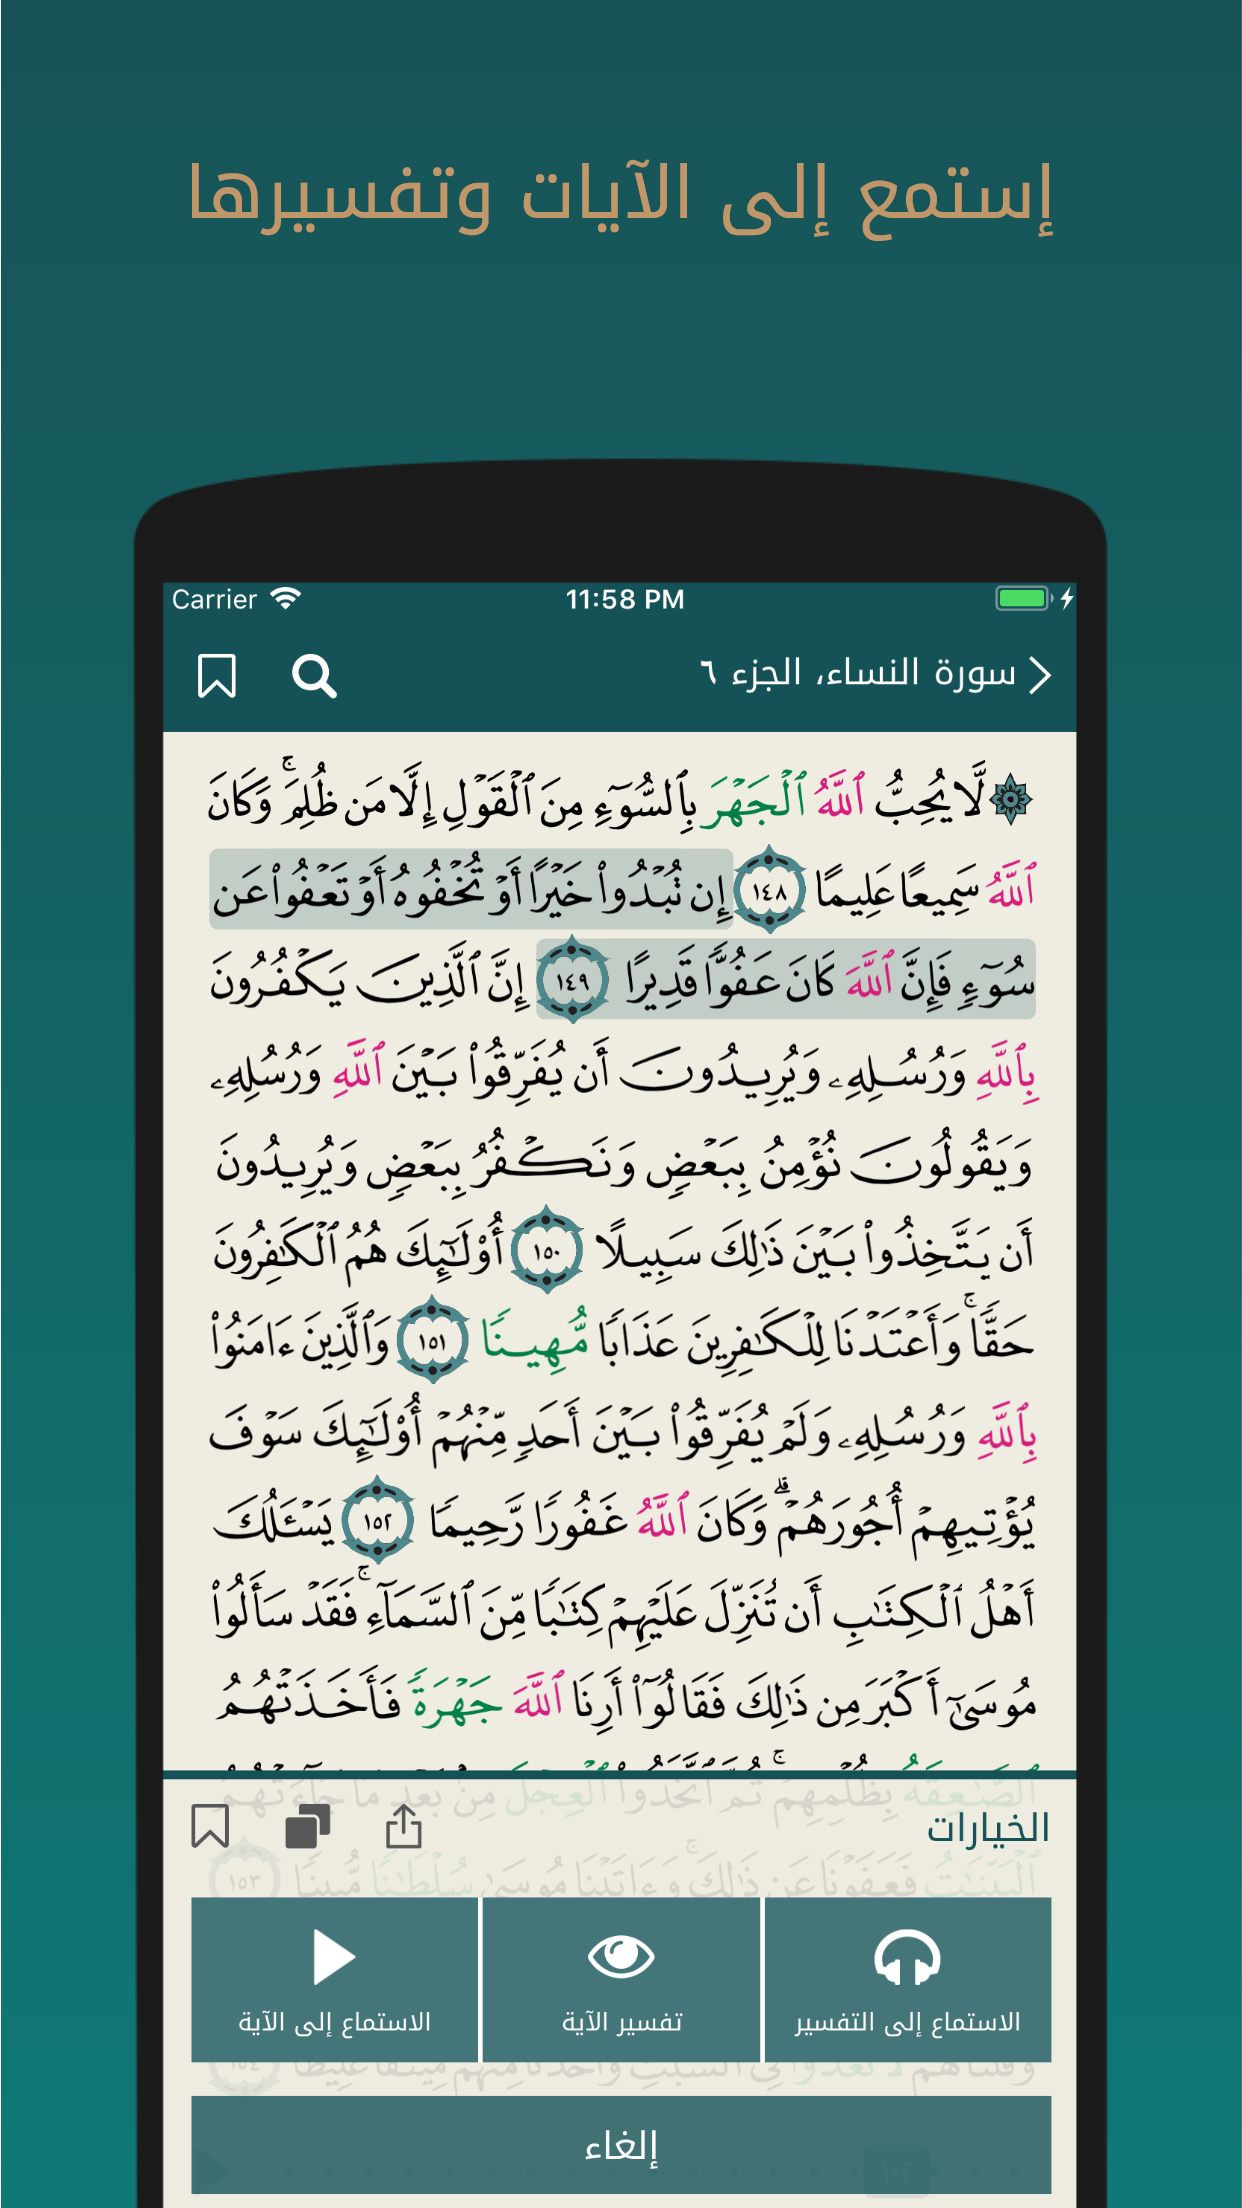 إستمع إلى الآيات وتفسيرها
Carrier 11:58 PM
سورة النساء، الجزء ٦
۞ لَّا يُحِبُّ ٱللَّهُ ٱلْجَهْرَ بِٱلسُّوٓءِ مِنَ ٱلْقَوْلِ إِلَّا مَن ظُلِمَ ۚ وَكَانَ
ٱللَّهُ سَمِيعًا عَلِيمًا ١٤٨ إِن تُبْدُوا۟ خَيْرًا أَوْ تُخْفُوهُ أَوْ تَعْفُوا۟ عَن
سُوٓءٍ فَإِنَّ ٱللَّهَ كَانَ عَفُوًّا قَدِيرًا ١٤٩ إِنَّ ٱلَّذِينَ يَكْفُرُونَ
بِٱللَّهِ وَرُسُلِهِۦ وَيُرِيدُونَ أَن يُفَرِّقُوا۟ بَيْنَ ٱللَّهِ وَرُسُلِهِۦ
وَيَقُولُونَ نُؤْمِنُ بِبَعْضٍ وَنَكْفُرُ بِبَعْضٍ وَيُرِيدُونَ
أَن يَتَّخِذُوا۟ بَيْنَ ذَٰلِكَ سَبِيلًا ١٥٠ أُو۟لَٰٓئِكَ هُمُ ٱلْكَٰفِرُونَ
حَقًّا ۚ وَأَعْتَدْنَا لِلْكَٰفِرِينَ عَذَابًا مُّهِينًا ١٥١ وَٱلَّذِينَ ءَامَنُوا۟
بِٱللَّهِ وَرُسُلِهِۦ وَلَمْ يُفَرِّقُوا۟ بَيْنَ أَحَدٍ مِّنْهُمْ أُو۟لَٰٓئِكَ سَوْفَ
يُؤْتِيهِمْ أُجُورَهُمْ ۗ وَكَانَ ٱللَّهُ غَفُورًا رَّحِيمًا ١٥٢ يَسْـَٔلُكَ
أَهْلُ ٱلْكِتَٰبِ أَن تُنَزِّلَ عَلَيْهِمْ كِتَٰبًا مِّنَ ٱلسَّمَآءِ ۚ فَقَدْ سَأَلُوا۟
مُوسَىٰٓ أَكْبَرَ مِن ذَٰلِكَ فَقَالُوٓا۟ أَرِنَا ٱللَّهَ جَهْرَةً فَأَخَذَتْهُمُ
ٱلصَّٰعِقَةُ بِظُلْمِهِمْ ۚ ثُمَّ ٱتَّخَذُوا۟ ٱلْعِجْلَ مِنۢ بَعْدِ مَا جَآءَتْهُمُ
الخيارات
ٱلْبَيِّنَٰتُ فَعَفَوْنَا عَن ذَٰلِكَ ۚ وَءَاتَيْنَا مُوسَىٰ سُلْطَٰنًا مُّبِينًا ١٥٣
الاستماع إلى التفسير
تفسير الآية
الاستماع إلى الآية
إلغاء